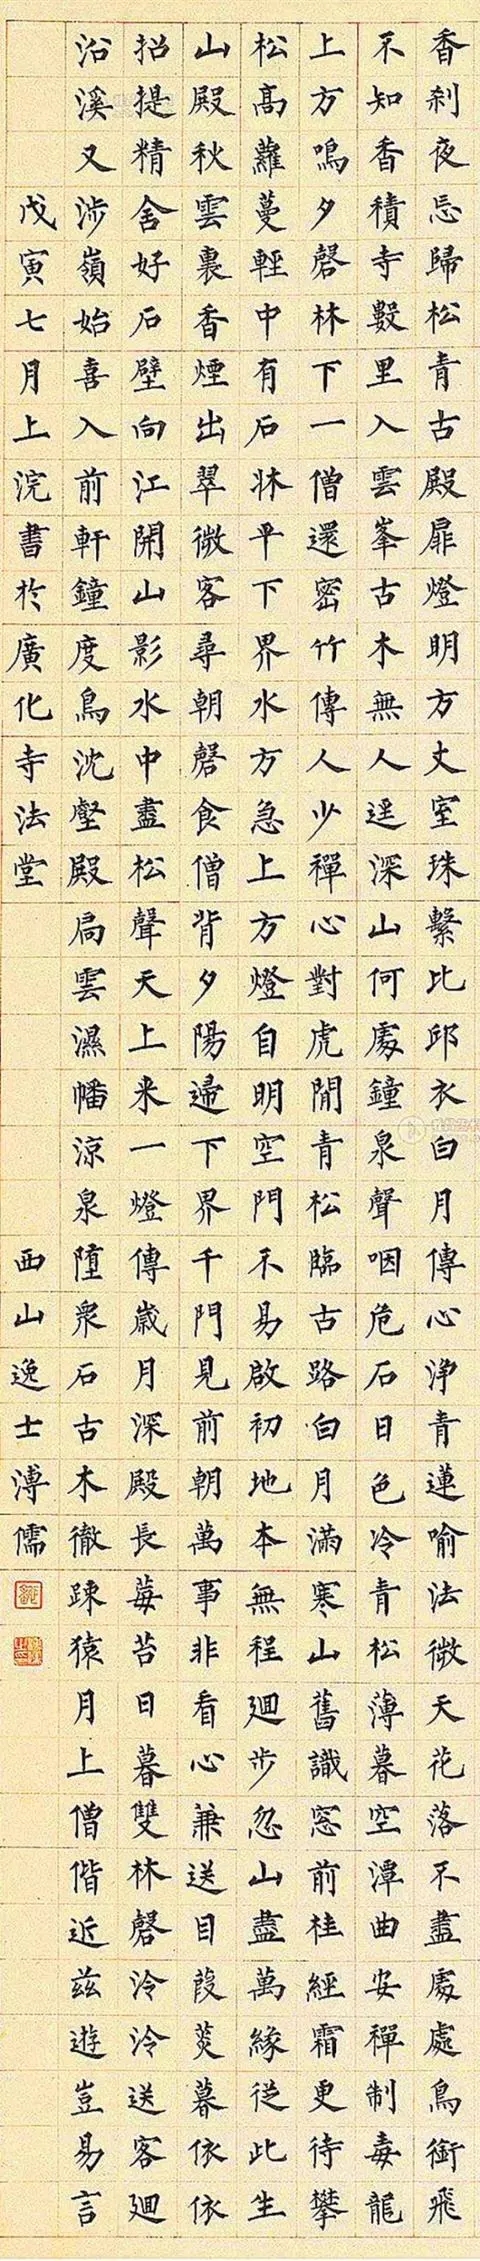 香刹夜忘歸松青古殿扉燈明方丈室珠繫比邱衣白月傳心淨青蓮喻法微天花落不盡處處鳥銜飛
不知香積寺數里入雲峯古木無人逕深山何處鐘泉聲咽危石日色冷青松薄暮空潭曲安禪制毒龍
上方鳴夕磬林下一僧還密竹傳人少禪心對虎閒青松臨古路白月滿寒山舊識窓前桂經霜更待攀
松高蘿蔓輕中有石牀平下界水方急上方燈自明空門不易啟初地本無程迴步忽山盡萬緣從此生
山殿秋雲裏香煙出翠微客尋朝磬食僧背夕陽歸下界千門見前朝萬事非看心兼送目葭菼暮依依
招提精舍好石壁向江開山影水中盡松聲天上来一燈傳歲月深殿長莓苔日暮雙林磬泠泠送客迴
沿溪又涉嶺始喜入前軒鐘度鳥沈壑殿扃雲濕幡涼泉墮衆石古木徹疎猿月上僧偕近茲遊豈易言
戊寅七月上浣書於廣化寺法堂 西山逸士溥儒